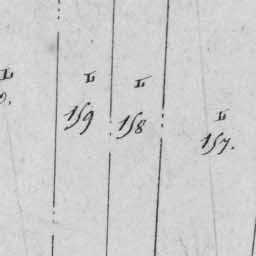 L
159
L
158
L
157.